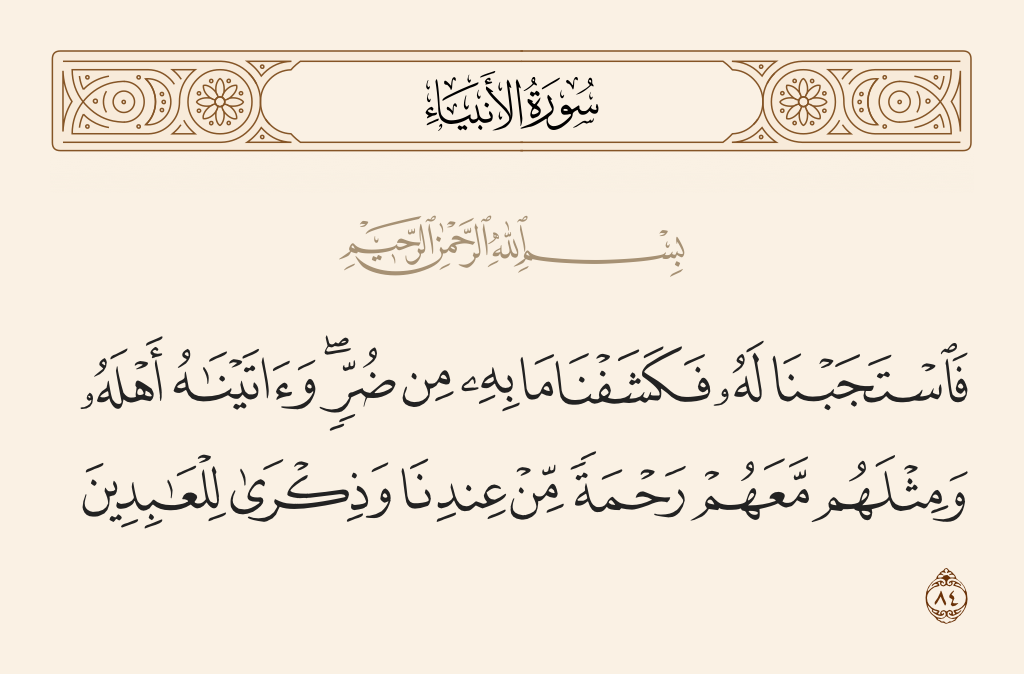 سُورَةُ الأَنبِيَاءِ
بِسْمِ ٱللَّهِ ٱلرَّحْمَٰنِ ٱلرَّحِيمِ
فَٱسْتَجَبْنَا لَهُۥ فَكَشَفْنَا مَا بِهِۦ مِن ضُرٍّۢ ۖ وَءَاتَيْنَٰهُ أَهْلَهُۥ
وَمِثْلَهُم مَّعَهُمْ رَحْمَةًۭ مِّنْ عِندِنَا وَذِكْرَىٰ لِلْعَٰبِدِينَ
٨٤